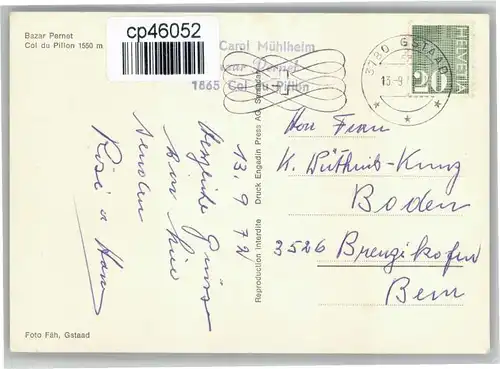 Bazar Pernet
Col du Pillon 1550 m
cp46052
Carol Mühlheim
Bazar Pernet
1865 Col du Pillon
3780 GSTAAD
13.-9
HELVETIA
20
13. 9. 72
Herzliche Grüsse
von hier
senden
Rösi u Hans
Reproduction interdite Druck Engadin Press AG, Samedan
Herr Frau
K. Lüthi-Kunz
Boden
3526 Brenzikofen
Bern
Foto Fäh, Gstaad